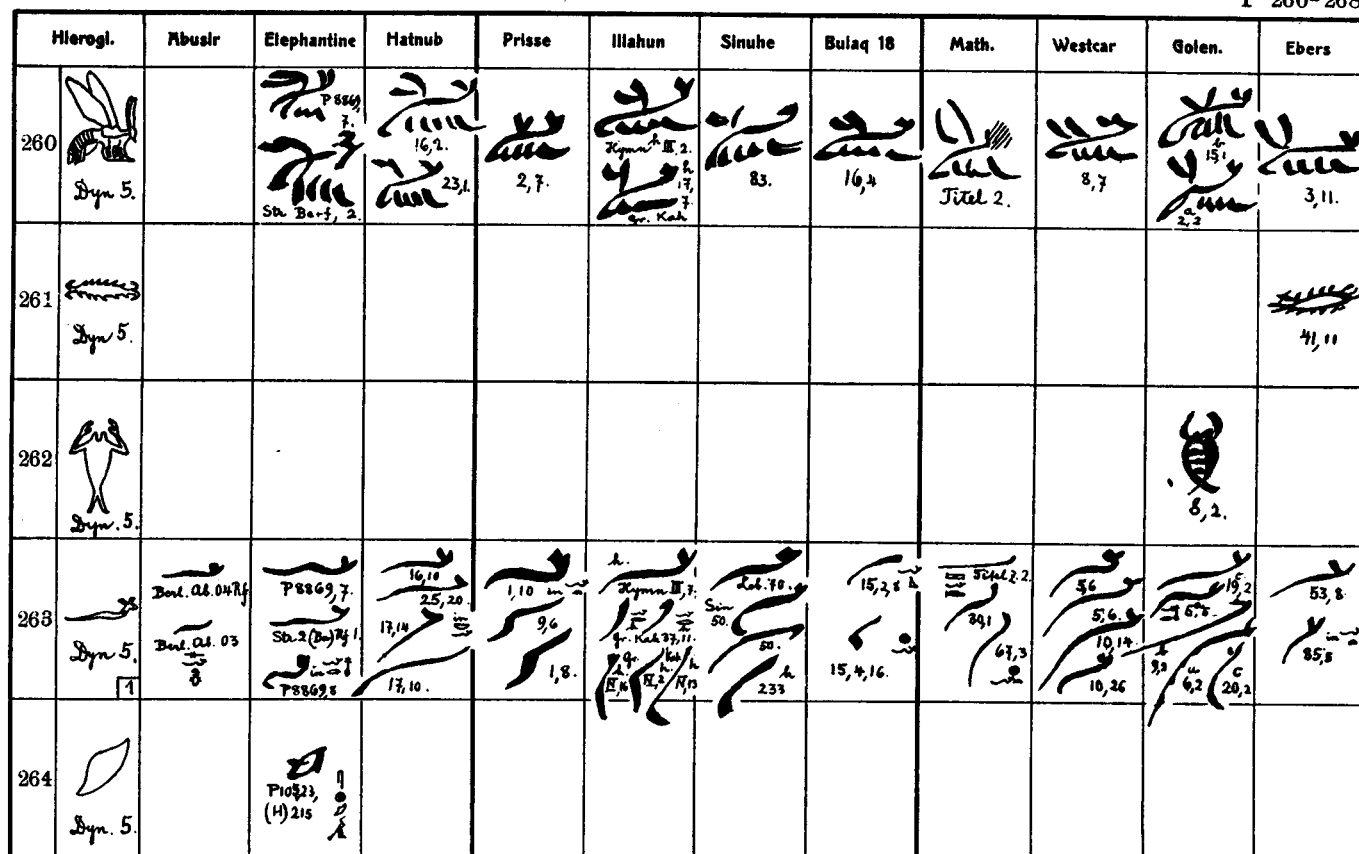 I 260-268
Hierogl. Abusir Elephantine Hatnub Prisse Illahun Sinuhe Bulaq 18 Math. Westcar Golen. Ebers
260
Dyn 5.
P 8869, 7.
Str. Berl, 2.
16,2.
23,1.
2,7.
Hymn h III, 2.
h 17, 7.
gr. Kah
83.
16,4
Titel 2.
8,7
b 15,1
a 2,2
3,11.
261
Dyn 5.
41,11
262
Dyn. 5.
8,2.
263
Dyn 5.
1
Berl. Ab. 04 Rf
Berl. Ab. 03
P 8869,7.
Str. 2 (Bn) Rf 1.
in
P8869,8
16,10
25,20.
17,14
17,10.
1,10 in
9,6
1,8.
h.
Hymn III, 7.
gr. Kah 37,11.
gr. h. IV,16
Kah h. IV,2
h IV,13
Leb. 70.
Sin 50.
50.
h 233
15,2,8
15,4,16.
Titel z. 2.
67,3
5,6
5,6.
10,14
10,26
c 19,2
a 5,5.
b 9,2
a 6,2
c 20,2
53,8.
in
85,8
264
Dyn. 5.
P10523,
(H) 215